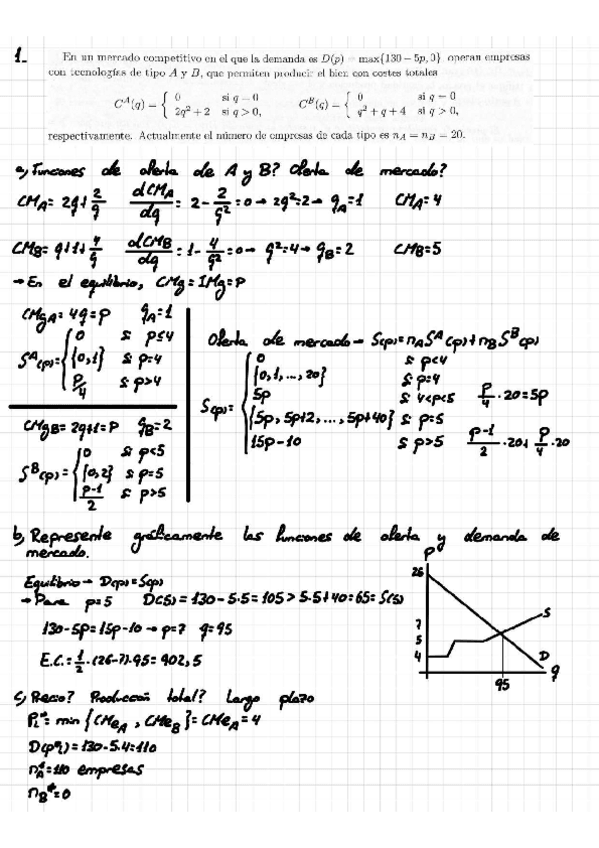 1.
En un mercado competitivo en el que la demanda es D(p) = max{130 − 5p, 0}, operan empresas
con tecnologías de tipo A y B, que permiten producir el bien con costes totales
C^A(q) = { 0 si q = 0 ; 2q² + 2 si q > 0, C^B(q) = { 0 si q = 0 ; q² + q + 4 si q > 0,
respectivamente. Actualmente el número de empresas de cada tipo es n_A = n_B = 20.
a) Funciones de oferta de A y B? Oferta de mercado?
CM_A = 2q + 2/q dCM_A/dq = 2 - 2/q² = 0 → 2q² = 2 → q_A = 1 CM_A = 4
CM_B = q + 1 + 4/q dCM_B/dq = 1 - 4/q² = 0 → q² = 4 → q_B = 2 CM_B = 5
→ En el equilibrio, CMg = IMg = P
CMg_A = 4q = p q_A = 1
S^A(p) = { 0 si p≤4
{0,1} si p=4
p/4 si p>4
CMg_B = 2q+1 = P q_B = 2
S^B(p) = { 0 si p<5
{0,2} si p=5
p-1/2 si p>5
Oferta de mercado → S(p) = n_A S^A(p) + n_B S^B(p)
S(p) = { 0 si p<4
{0,1,...,20} si p=4
5p si 4<p<5 p/4 · 20 = 5p
{5p, 5p+2, ..., 5p+40} si p=5
15p-10 si p>5 p-1/2 · 20 + p/4 · 20
b) Represente gráficamente las funciones de oferta y demanda de
mercado.
Equilibrio → D(p) = S(p)
→ Para p=5 D(5) = 130 - 5·5 = 105 > 5·5+40 = 65 = S(5)
130-5p = 15p-10 → p=7 q=95
E.C. = 1/2 · (26-7) · 95 = 902,5
P
26
7
5
4
S
D
q
95
c) Precio? Producción total? Largo plazo
P_L* = min {CMe_A, CMe_B} = CMe_A = 4
D(p*_L) = 130 - 5·4 = 110
n_A* = 110 empresas
n_B* = 0